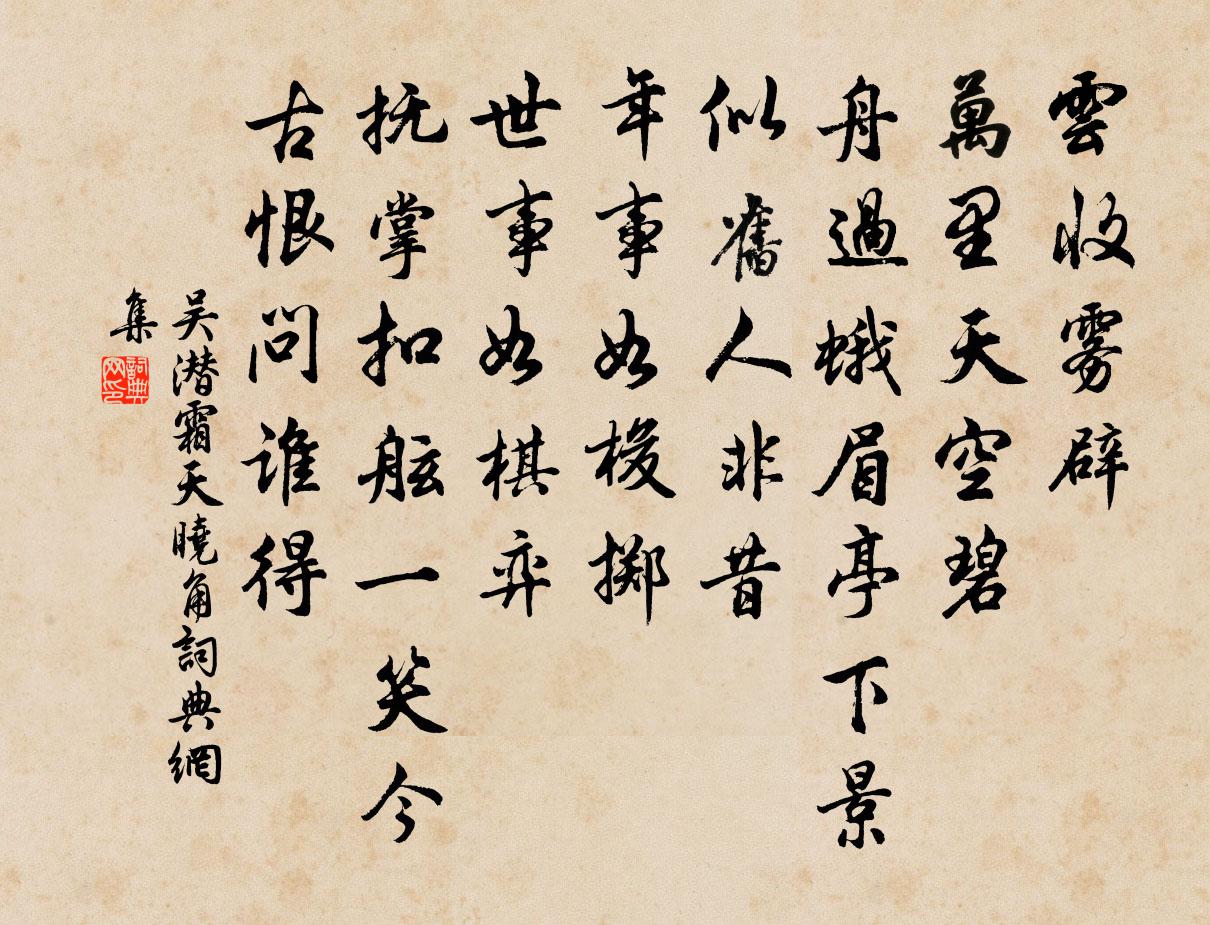 雲收雾辟
萬里天空碧
舟過蛾眉亭下景
似舊人非昔
年事如梭擲
世事如棋弈
抚掌扣舷一笑今
古恨问谁得
吴潜霜天曉角詞典網
集
詞典網印